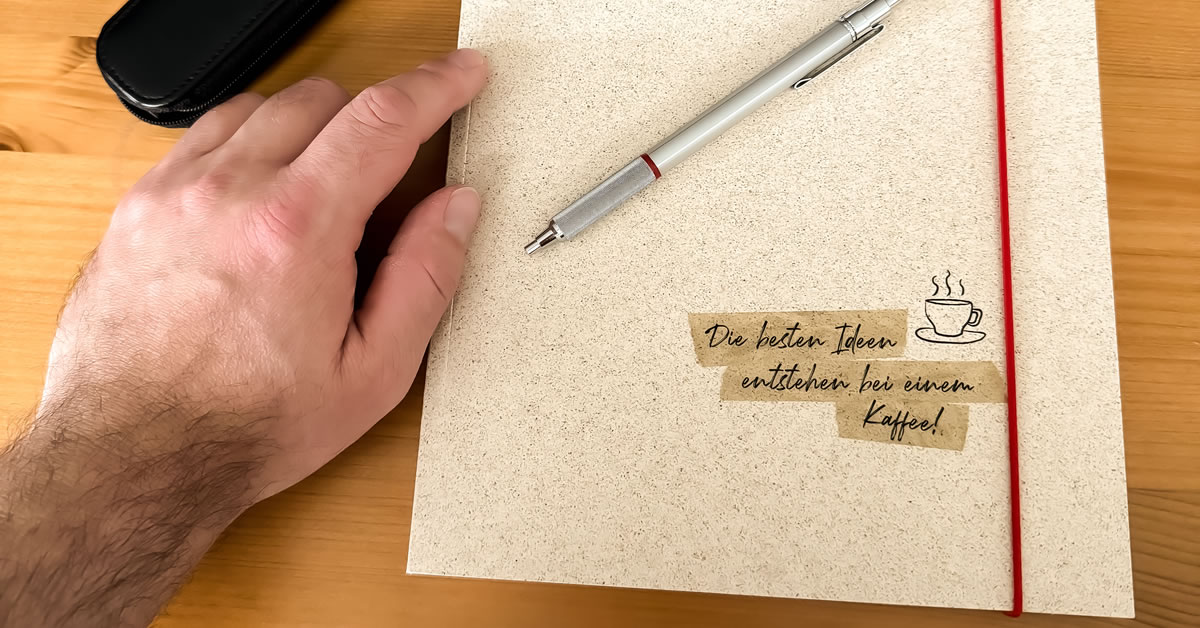 Die besten Ideen
entstehen bei einem
Kaffee!